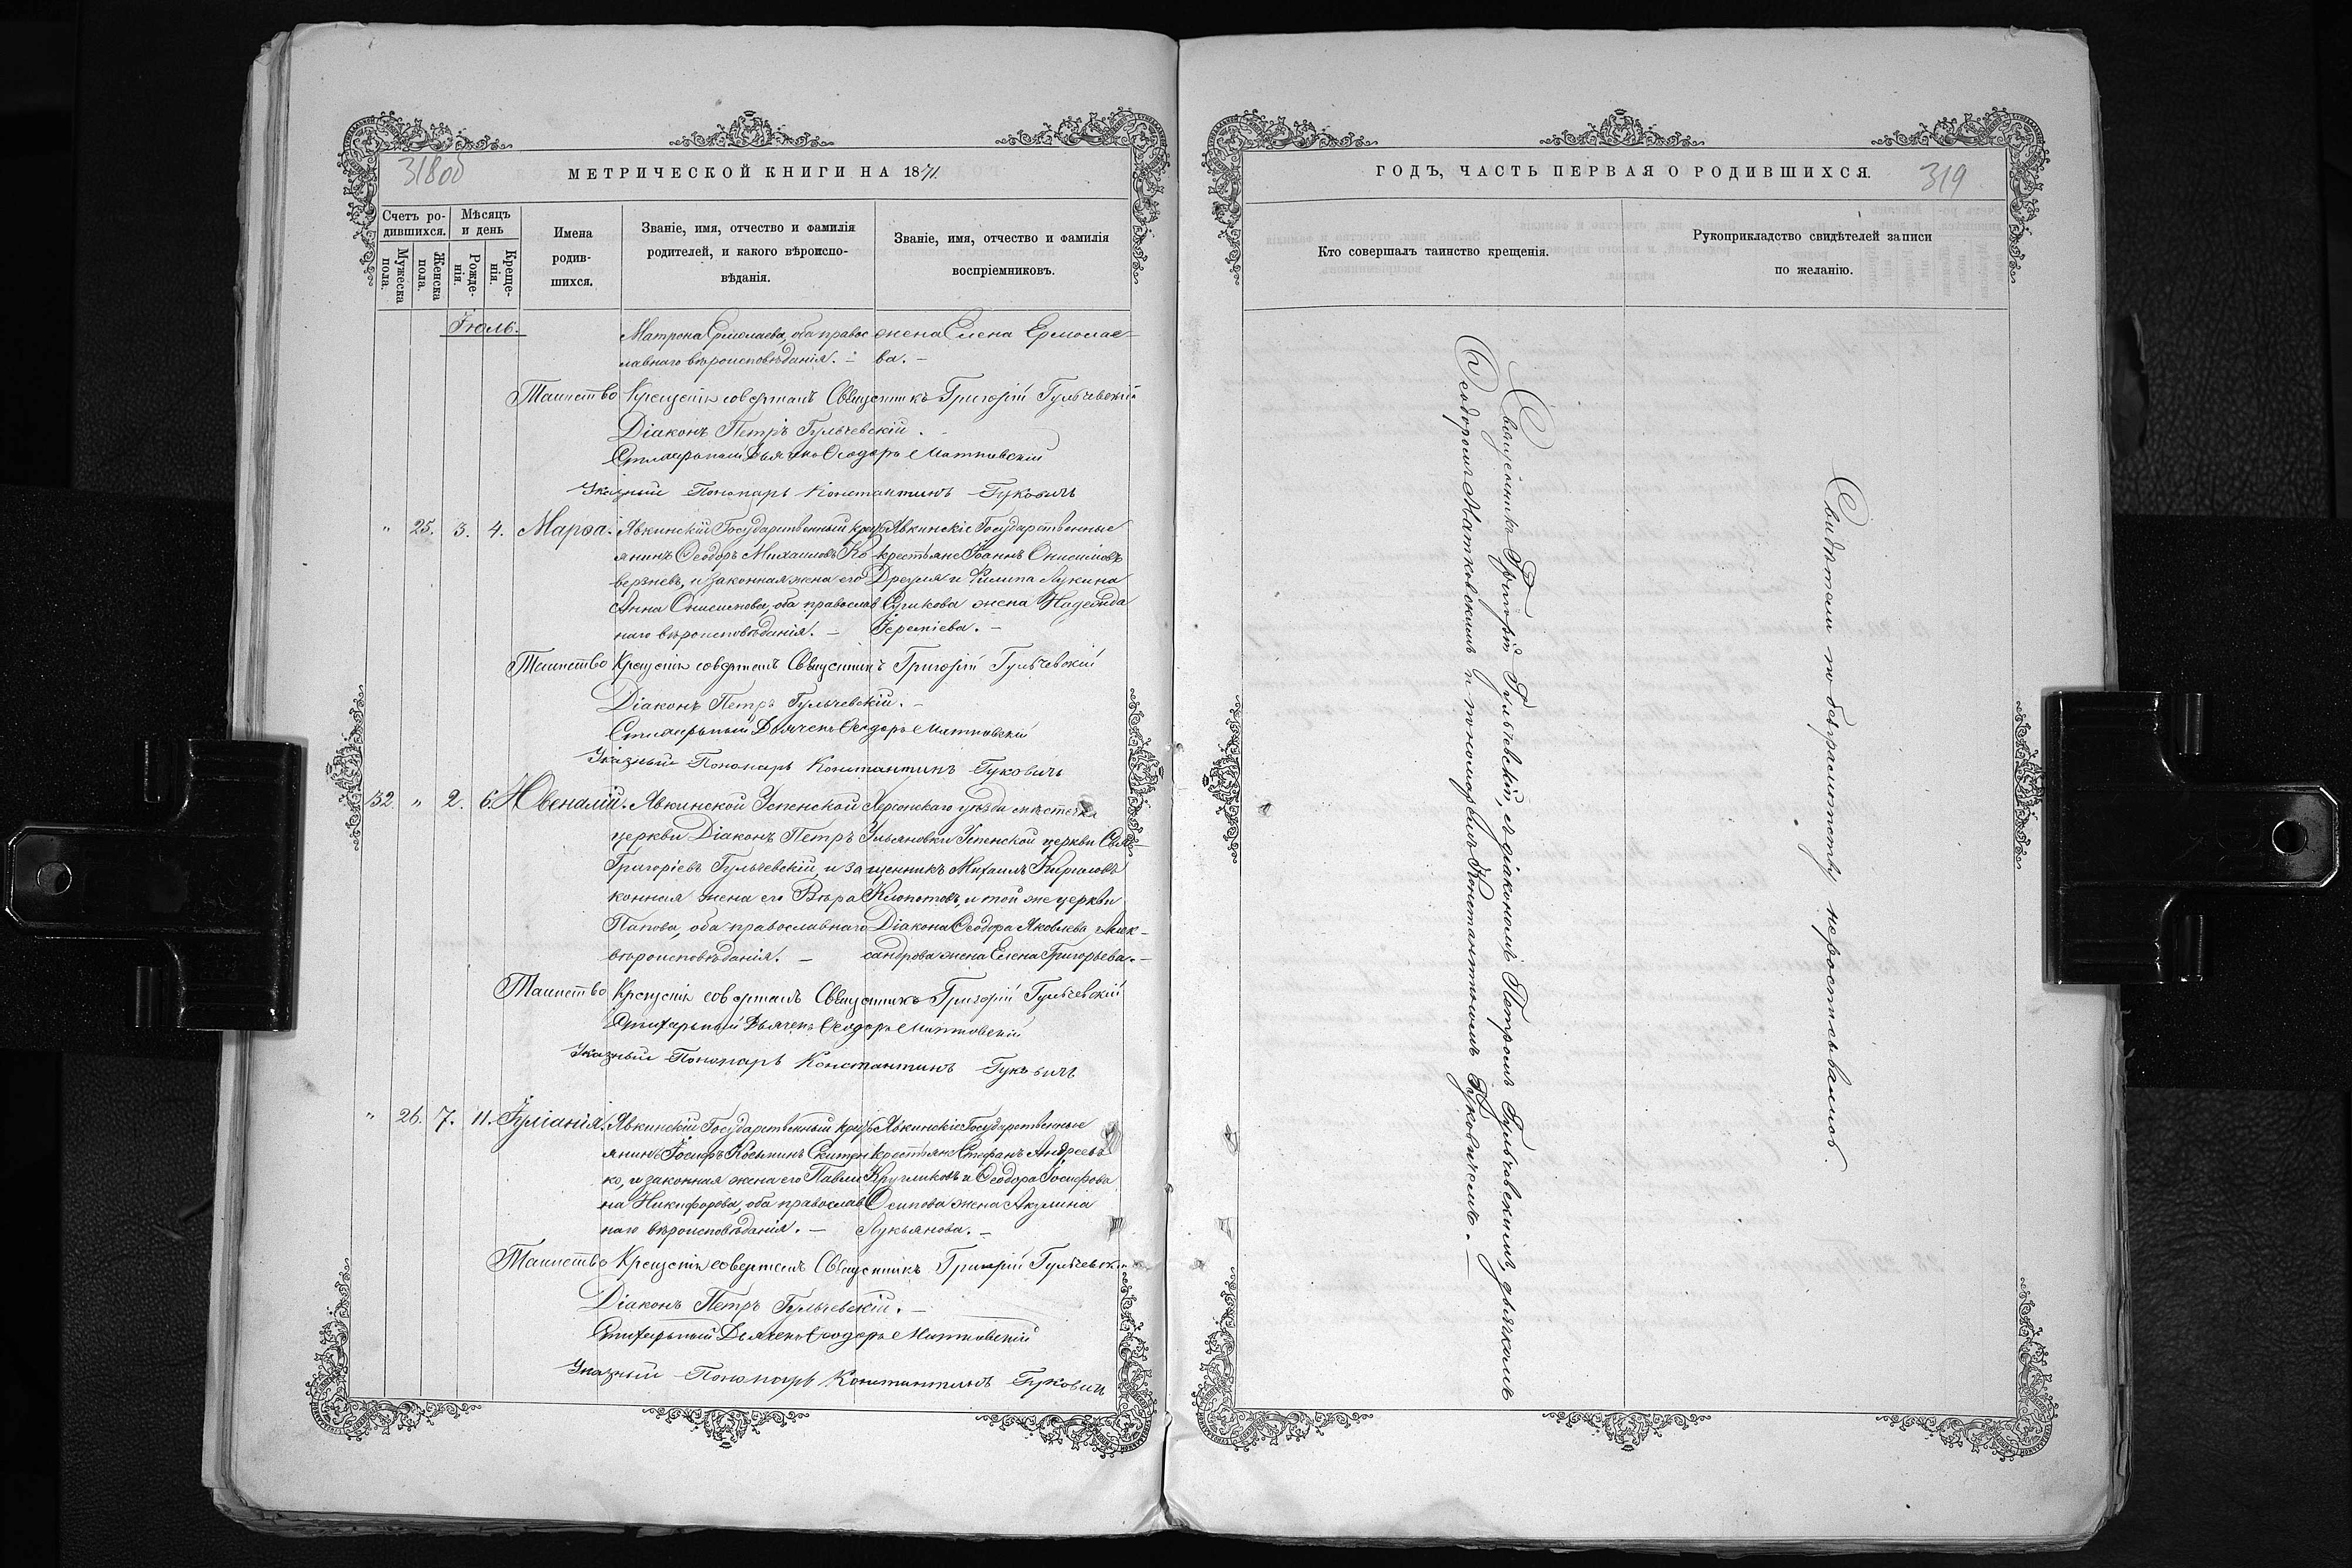 318об
МЕТРИЧЕСКОЙ КНИГИ НА 1871.
Счетъ ро-
дившихся.
Мужеска пола.
Женска пола.
Мѣсяцъ
и день
Рожде-
нія.
Креще-
нія.
Имена
родив-
шихся.
Званіе, имя, отчество и фамилія
родителей, и какого вѣроиспо-
вѣданія.
Званіе, имя, отчество и фамилія
воспріемниковъ.
Іюль.
Матрона Ермолаева, оба правос-
лавнаго вѣроисповѣданія. –
жена Елена Ермолае-
ва. –
Таинство Крещенія совершалъ Священникъ Григорій Гульчевскій
Діаконъ Петръ Гульчевскій.
Стихарный Дьячекъ Ѳеодоръ Матковскій
Указный Пономарь Константинъ Гуковичъ
" 25. 3. 4. Марѳа.
Явкинскій Государственный крест-
янинъ Ѳеодоръ Михаиловъ Ко-
верзневъ, и законная жена его
Анна Онисимова, оба православ-
наго вѣроисповѣданія. –
Явкинскіе Государственные
крестьяне Іоаннъ Онисимовъ
Дрегуля и Филипа Лукина
жена Надежда
Іереміева. –
Таинство Крещенія совершалъ Священникъ Григорій Гульчевскій
Діаконъ Петръ Гульчевскій. –
Стихарный Дьячекъ Ѳеодоръ Матковскій
Указный Пономарь Константинъ Гуковичъ
32. " 2. 6. Ювеналій.
Явкинской Успенской
церкви Діаконъ Петръ
Григоріевъ Гульчевскій, и за-
конная жена его Вѣра
Попова, оба православнаго
вѣроисповѣданія. –
Херсонскаго уѣзда мѣстечка
Ульяновки Успенской церкви Свя-
щенникъ Михаилъ Кириловъ
Клопотовъ, и той же церкви
Діакона Ѳеодора Яковлева Алек-
сандрова жена Елена Григорьева. –
Таинство Крещенія совершалъ Священникъ Григорій Гульчевскій
Стихарный Дьячекъ Ѳеодоръ Матковскій
Указный Пономарь Константинъ Гуковичъ
" 26. 7. 11. Іуліанія.
Явкинскій Государственный крест-
янинъ Іосифъ Косьминъ
ко, и законная жена его Павли-
на Никифорова, оба православ-
наго вѣроисповѣданія. –
Явкинскіе Государственные
крестьяне Стефанъ Андреевъ
Кругликовъ и Ѳеодора Іосифова
Осипова жена Акулина
Лукьянова. –
Таинство Крещенія совершалъ Священникъ Григорій Гульчевскій
Діаконъ Петръ Гульчевскій. –
Стихарный Дьячекъ Ѳеодоръ Матковскій
Указный Пономарь Константинъ Гуковичъ
ГОДЪ, ЧАСТЬ ПЕРВАЯ О РОДИВШИХСЯ.
319
Кто совершалъ таинство крещенія.
Рукоприкладство свидѣтелей записи
по желанію.
Священникъ Григорій Гульчевскій, съ діакономъ Петромъ Гульчевскимъ, дьячкомъ
Ѳеодоромъ Матковскимъ и пономаремъ Константиномъ Гуковичемъ. –
Свидѣтели по безграмотству неросписывались.